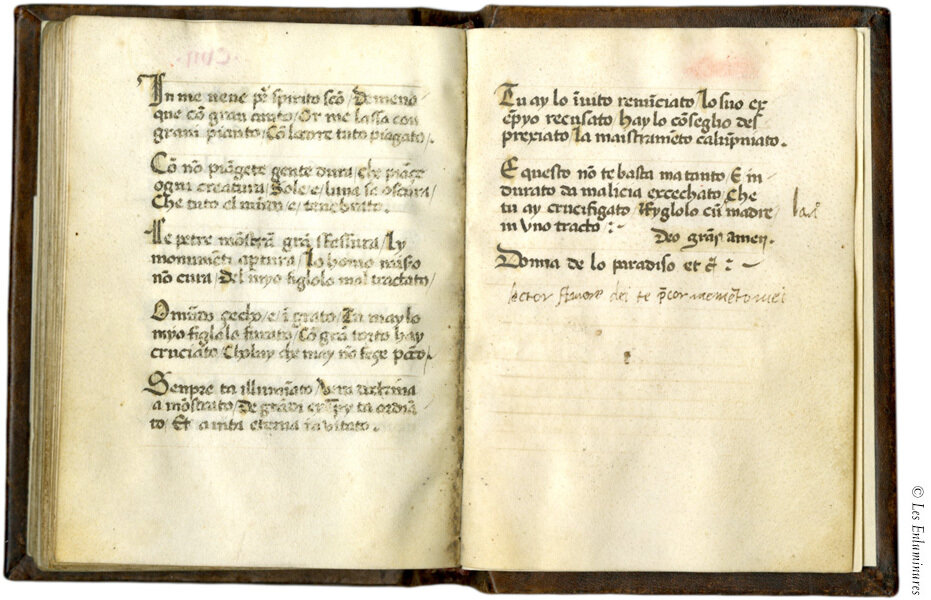 In me uene pẽ spirito scõ / De meno
que cõ gran anito / Or me lassa con
grani pianto / Cõ lo core tuto piagato /
Cõ nõ piãgete gente dura / che piãge
ogni creatura / Sole / e / luna se oscura /
Che tuto el mũno / e / tenebrato .
Le petre mõstrã grã fessura / Ly
monumẽti aptura / Lo homo miso
nõ cura / Del myo figlolo mal tractato /
O mũno cecho / e / ĩ grato / Tu may lo
myo figlolo furato / Cõ grã torto hay
cruciato / che may nõ fece
Senpre ta illumĩato / Vera doctrina
a mõstrato / De grãdi ta ordia
to / Et a uita eterna ta ĩuitato .
Tu ay lo ĩuito renũciato / lo suo ex
ẽpyo recusato / hay lo cõseglio des
prexiato / la maistramẽto calũpniato .
E questo nõ te basta ma tanto / E in
durato da malicia excechato / Che
tu ay crucifigato / figlolo cũ madre /
in vno tracto :~
Deo grãs amen .
Donna de lo paradiso et c̃ :~
lector Amore dei te p̃cor memẽto mei
© Les Enluminures